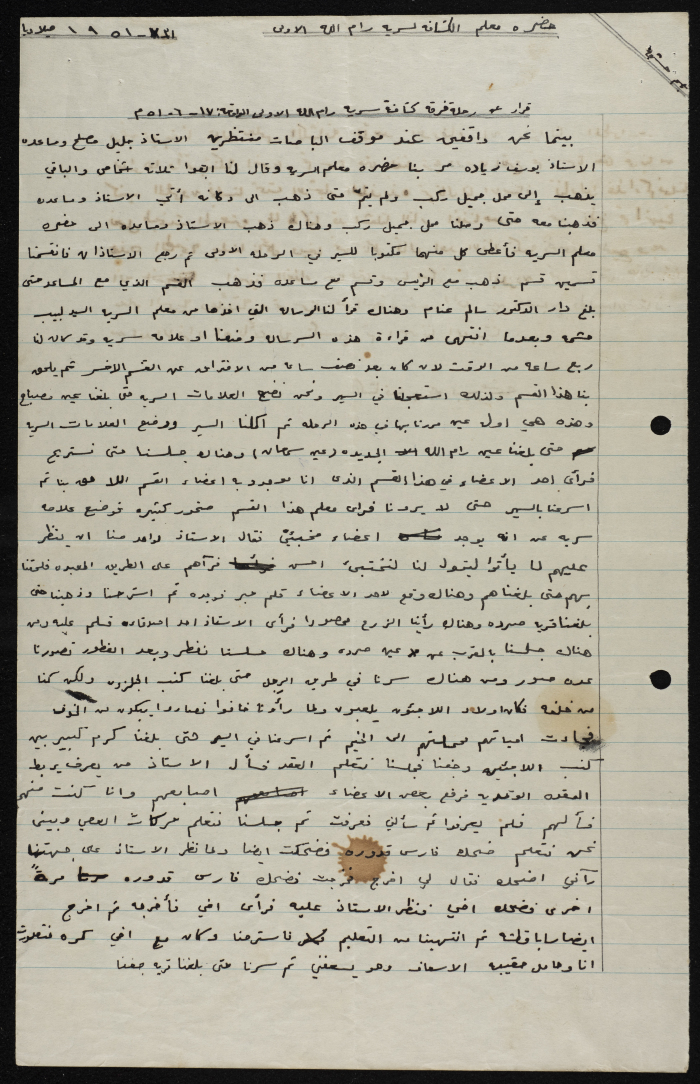 حضرة معلم الكشافة لسرية رام الله الاولى
١٩٥١ ميلاديا
قرار عن رحلة فرقة كشافة سرية رام الله الاولى ١٧-٦-٥١م
بينما نحن واقفين عند موقف الباصات منتظرين الاستاذ جليل مصلح وساعده
الاستاذ يوسف زياده مر بنا حضرة معلم السرية وقال لنا ابقوا ثلاثة اشخاص والباقي
يذهب إلى محل جميل ركب ولم يتم حتى ذهب الى وكانه أتى الاستاذ ومساعده
فذهبنا معه حتى وصلنا محل جميل ركب وهناك ذهب الاستاذ ومساعده الى حضرة
معلم السرية فأعطى كل منهما مكتوبا للسير في الرحلة الاولى ثم رجع الاستاذان فانقسمنا
قسمين قسم ذهب مع الرئيس وقسم مع مساعده فذهب القسم الذي مع المساعد حتى
بلغ دار الدكتور سالم غنام وهناك قرأ لنا الرسالة التي اخذها من معلم السرية السيد لبيب
حشمه وبعدما انتهى من قراءة هذه الرسالة وضعنا اول علامة سرية وقد كان لنا
ربع ساعة من الوقت لان كان بعد نصف ساعة من الافتراق عن القسم الاخر ثم يلحق
بنا هذا القسم ولذلك استعجلنا في السير ونحن نضع العلامات السرية حتى بلغنا عين مصباح
وهذه هي اول عين مررنا بها في هذه الرحلة ثم اكملنا السير ووضع العلامات السرية
حتى بلغنا عين رام الله الجديدة (عين سمعان) وهناك جلسنا حتى نستريح
فرأى احد الاعضاء في هذا القسم الذي انا موجود به اعضاء القسم اللاحق بنا ثم
اسرعنا بالسير حتى لا يرونا فرأى معلم هذا القسم صخور كثيرة فوضع علامة
سرية عن انه يوجد اعضاء مختبئين فقال الاستاذ لواحد منا ان ينظر
عليهم لما يأتوا ليقول لنا لنختبئ احسن فرآهم على الطريق المعبدة فلحقنا
بهم حتى بلغناهم وهناك وقع لاحد الاعضاء قلم حبر فوجده ثم استرحنا وذهبنا حتى
بلغنا قرية صرده وهناك رأينا الزرع محصودا فرأى الاستاذ احد اصدقاءه فسلم عليه ومن
هناك جلسنا بالقرب من عين صرده وهناك جلسنا نفطر وبعد الفطور تصورنا
عدة صور ومن هناك سرنا في طريق الرجل حتى بلغنا كنب الجلزون ولكن كنا
من خلفه فكان اولاد اللاجئون يلعبون ولما رأونا خافوا فصاروا يبكون من الخوف
فجاءت امهاتهم وحملتهم الى المخيم ثم اسرعنا في السير حتى بلغنا كرم كبير بين
كنب اللاجئين وجفنا فجلسنا نتعلم العقد فسأل الاستاذ من يعرف يربط
العقده الوتدية فرفع بعض الاعضاء اصابعهم وانا كنت منهم
فسألهم فلم يعرفوا ثم سألني فعرفت ثم جلسنا نتعلم حركات العصي وبينما
نحن نتعلم ضحك فارس قدوره فضحكت ايضا ولما نظر الاستاذ على جهتنا
رآني اضحك فقال لي اخرج فخرجت فضحك فارس قدوره مرة
اخرى فضحك اخي فنظر الاستاذ عليه فرأى اخي فأخرجه ثم اخرج
ايضا سابا قلته ثم انتهينا من التعليم فاسترحنا وكان مع اخي كمره فتصورت
انا وحامل حقيبة الاسعاف وهو يسعفني ثم سرنا حتى بلغنا قرية جفنا